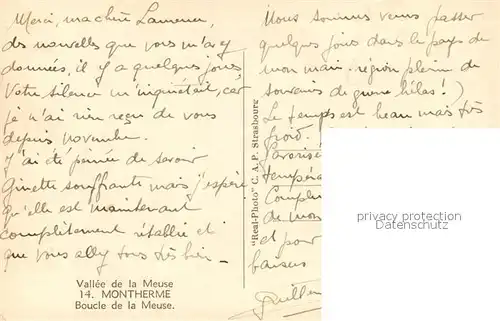 Merci, ma chère Lamerue,
des nouvelles que vous m'avez
données, il y a quelques jours
Votre silence m'inquiétait, car
je n'ai rien reçu de vous
depuis novembre.
J'ai été peinée de savoir
Ginette souffrante mais j'espère
qu'elle est maintenant
complètement rétablie et
que vous allez tous très bien -
Vallée de la Meuse
14. MONTHERME
Boucle de la Meuse.
"Real-Photo" C. A. P. Strasbourg
Nous sommes venus passer
quelques jours dans le pays de
mon mari - région pleine de
souvenirs de guerre hélas !)
Le temps est beau mais très
froid.
tempéra
de mon
et pour
baisers
privacy protection
Datenschutz